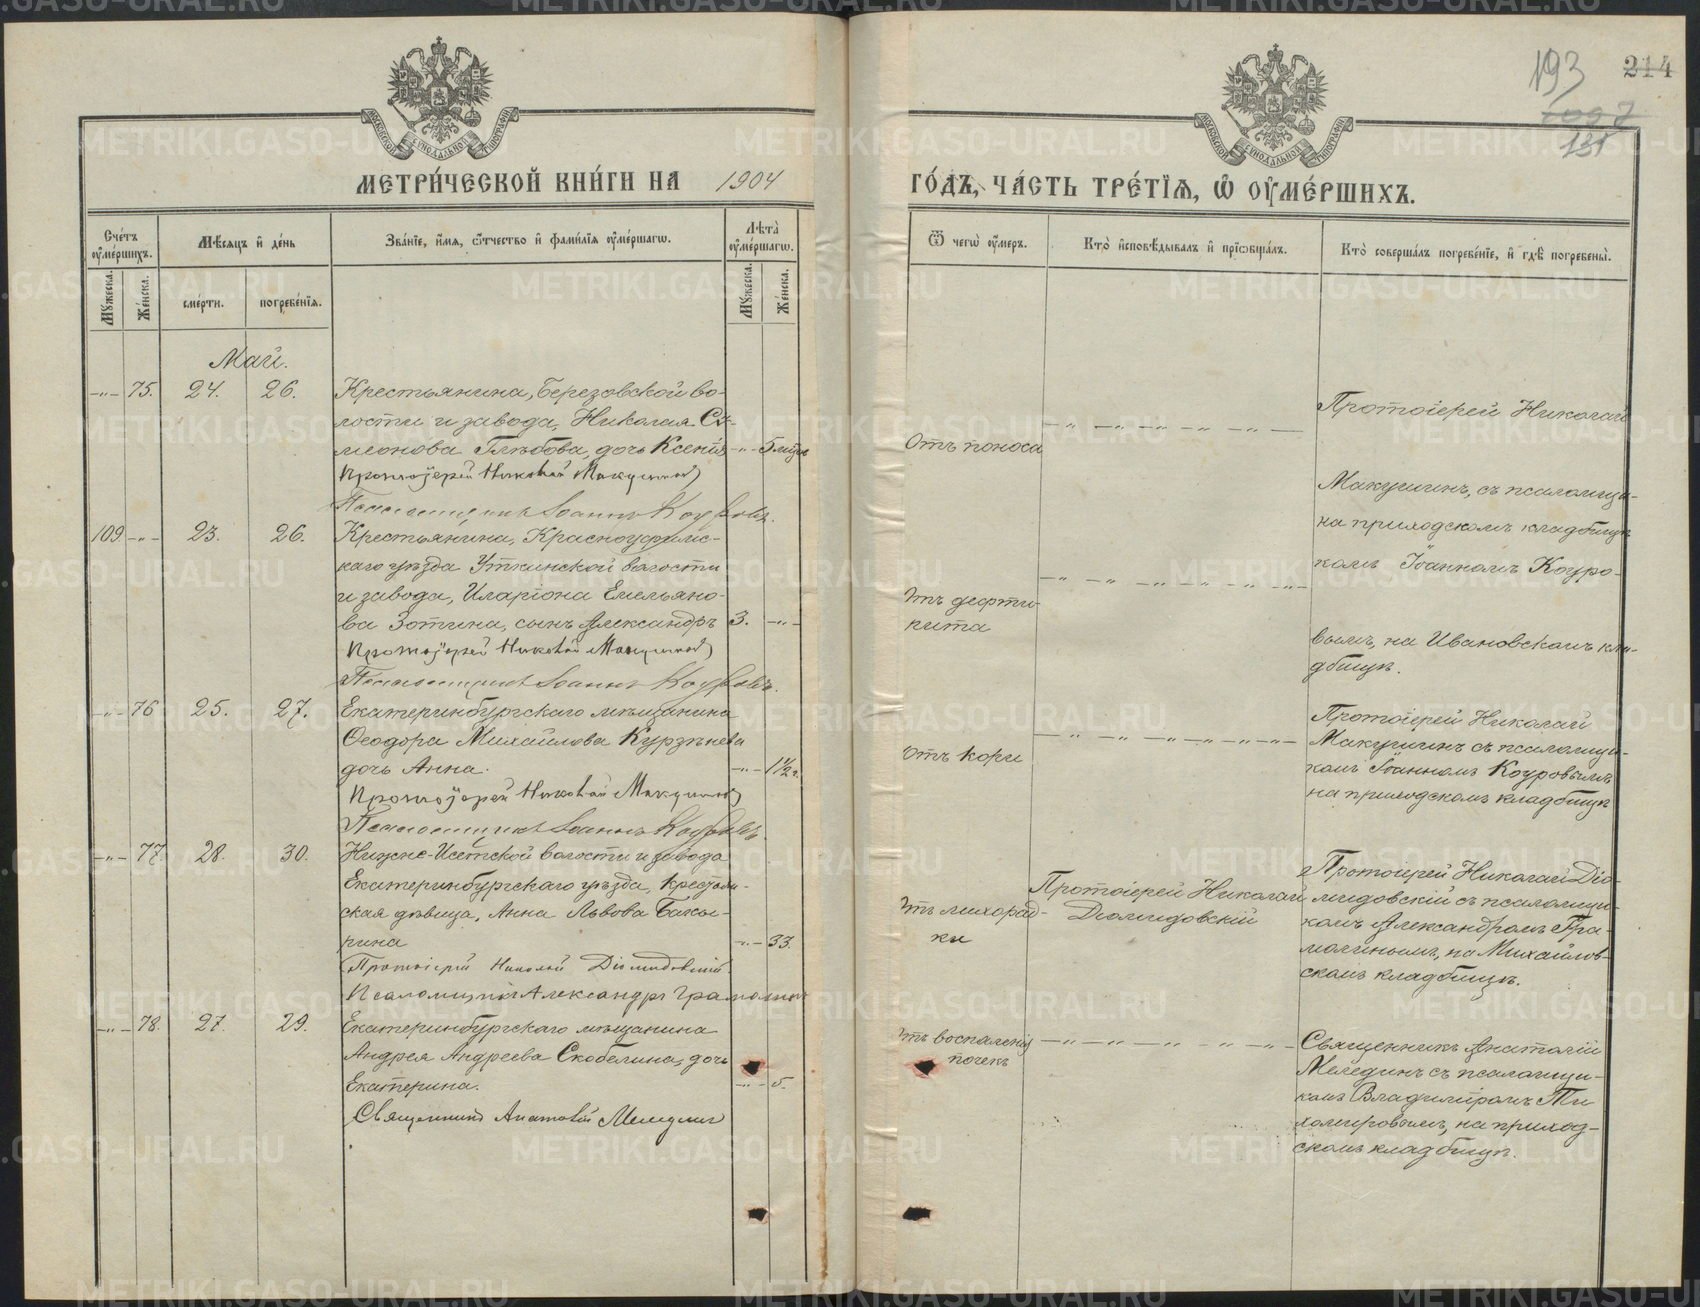 193
214
131
МЕТРИ́ЧЕСКОЙ КНИ́ГИ НА 1904
ГО́ДЪ, ЧА́СТЬ ТРЕ́ТІѦ, Ѡ҆ ОУ҆МЕ́РШИХЪ.
МОСКОВСКОЙ СѴНОДАЛЬНОЙ ТИПОГРАФІИ
МОСКОВСКОЙ СѴНОДАЛЬНОЙ ТИПОГРАФІИ
Сче́тъ оу҆ме́ршихъ.
Мꙋ́жеска.
Же́нска.
Мѣ́сяцъ и҆ де́нь
сме́рти.
погребе́нїѧ.
Зва́нїе, и҆́мѧ, ѻ҆́тчество и҆ фами́лїѧ оу҆ме́ршагѡ.
Лѣ́та̀ оу҆ме́ршагѡ.
Мꙋ́жеска.
Же́нска.
Ѿ чегѡ̀ оу҆́меръ.
Кто̀ и҆сповѣ́дывалъ и҆ прїѡбща́лъ.
Кто̀ соверша́лъ погребе́нїе, и҆ гдѣ̀ погребены̀.
Май.
-"- 75. 24. 26. Крестьянина, Березовской во-
лости и завода, Николая Си-
меонова Глѣбова, дочь Ксенія -"- 5 мѣс.
Протоіерей Николай Макушинъ
Псаломщикъ Іоаннъ Коуровъ.
Отъ поноса
Протоіерей Николай
Макушинъ, съ псаломщи-
на приходскомъ кладбищѣ
109 -"- 23. 26. Крестьянина, Красноуфимс-
каго уѣзда Уткинской волости
и завода, Иларіона Емельяно-
ва Зотина, сынъ Александръ 3. -"-
Протоіерей Николай Макушинъ
Псаломщикъ Іоаннъ Коуровъ.
Отъ дефти-
рита
комъ Іоанномъ Коуро-
вымъ, на Ивановскомъ кла-
дбищѣ.
-"- 76 25. 27. Екатеринбургскаго мѣщанина
Ѳеодора Михайлова Курзѣнева
дочь Анна. -"- 1 1/2 г.
Протоіерей Николай Макушинъ
Псаломщикъ Іоаннъ Коуровъ.
Отъ кори
Протоіерей Николай
Макушинъ съ псаломщи-
комъ Іоанномъ Коуровымъ
на приходскомъ кладбищѣ
-"- 77 28. 30. Нижне-Исетской волости и завода
Екатеринбургскаго уѣзда, крестьян-
ская дѣвица, Анна Львова Бакы-
рина -"- 33.
Протоіерей Николай Діомидовскій
Псаломщикъ Александръ Грамолинъ
Отъ лихорад-
ки
Протоіерей Николай
Діомидовскій
Протоіерей Николай Діо-
мидовскій съ псаломщи-
комъ Александромъ Гра-
молинымъ, на Михайлов-
скомъ кладбищѣ.
-"- 78. 27. 29. Екатеринбургскаго мѣщанина
Андрея Андреева Скобелина, дочь
Екатерина. -"- 5.
Священникъ Анатолій Мелединъ
Отъ воспаленія
почекъ
Священникъ Анатолій
Мелединъ съ псаломщи-
комъ Владиміромъ Ти-
хомировымъ, на приход-
скомъ кладбищѣ.
METRIKI.GASO-URAL.RU